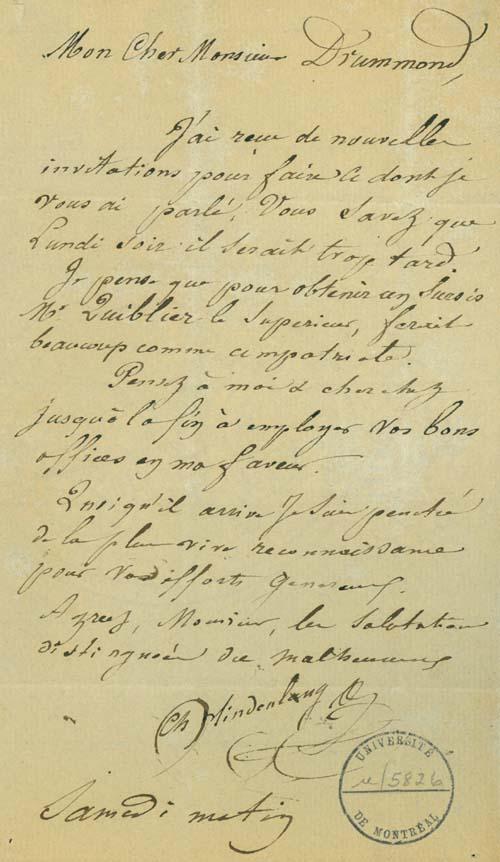 Mon Cher Monsieur Drummond,
J'ai recu de nouvelles
invitations pour faire ce dont je
vous ai parlé. Vous savez que
Lundi soir il serait trop tard.
Je pense que pour obtenir un sursis
Mr Quiblier le Superieur, ferait
beaucoup comme compatriote.
Pensez à moi & cherchez
jusqu'à la fin à employer vos bons
offices en ma faveur.
Quoiqu'il arrive je suis penetré
de la plus vive reconnaissance
pour vos efforts genereux.
Agreez, Monsieur, les salutations
distinguées du malheureux
Ch Hindenlang
Samedi matin
UNIVERSITÉ
5826
DE MONTRÉAL